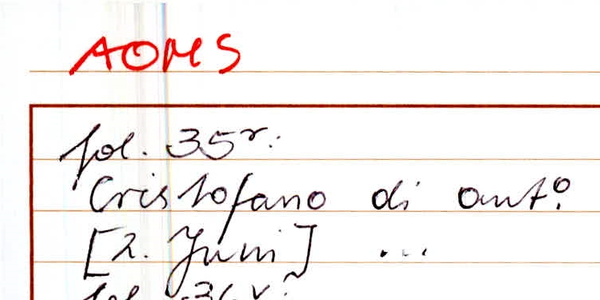 AOMS
fol. 35r:
Cristofano di ant.º
[2. Juni] ...